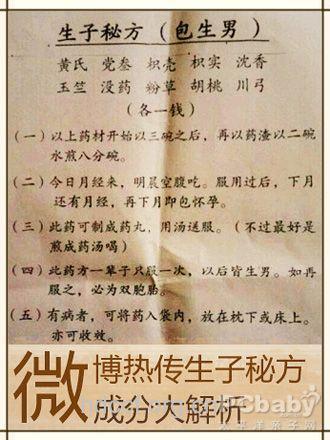 生子秘方（包生男）
黄氏 党叁 枳壳 枳实 沈香
玉竺 没药 粉草 胡桃 川弓
（各一钱）
（一）以上药材开始以三碗之后，再以药渣以二碗
水煎八分碗。
（二）今日月经来，明晨空腹吃。服用过后，下月
还有月经，再下月即包怀孕。
（三）此药可制成药丸，用汤送服。（不过最好是
煎成药汤喝）
（四）此药方一辈子只服一次，以后皆生男。如再
服之，必为双胞胎。
（五）有病者，可将药入袋内，放在枕下或床上。
亦可收效。
微博热传生子秘方
成分大解析
太平洋亲子网